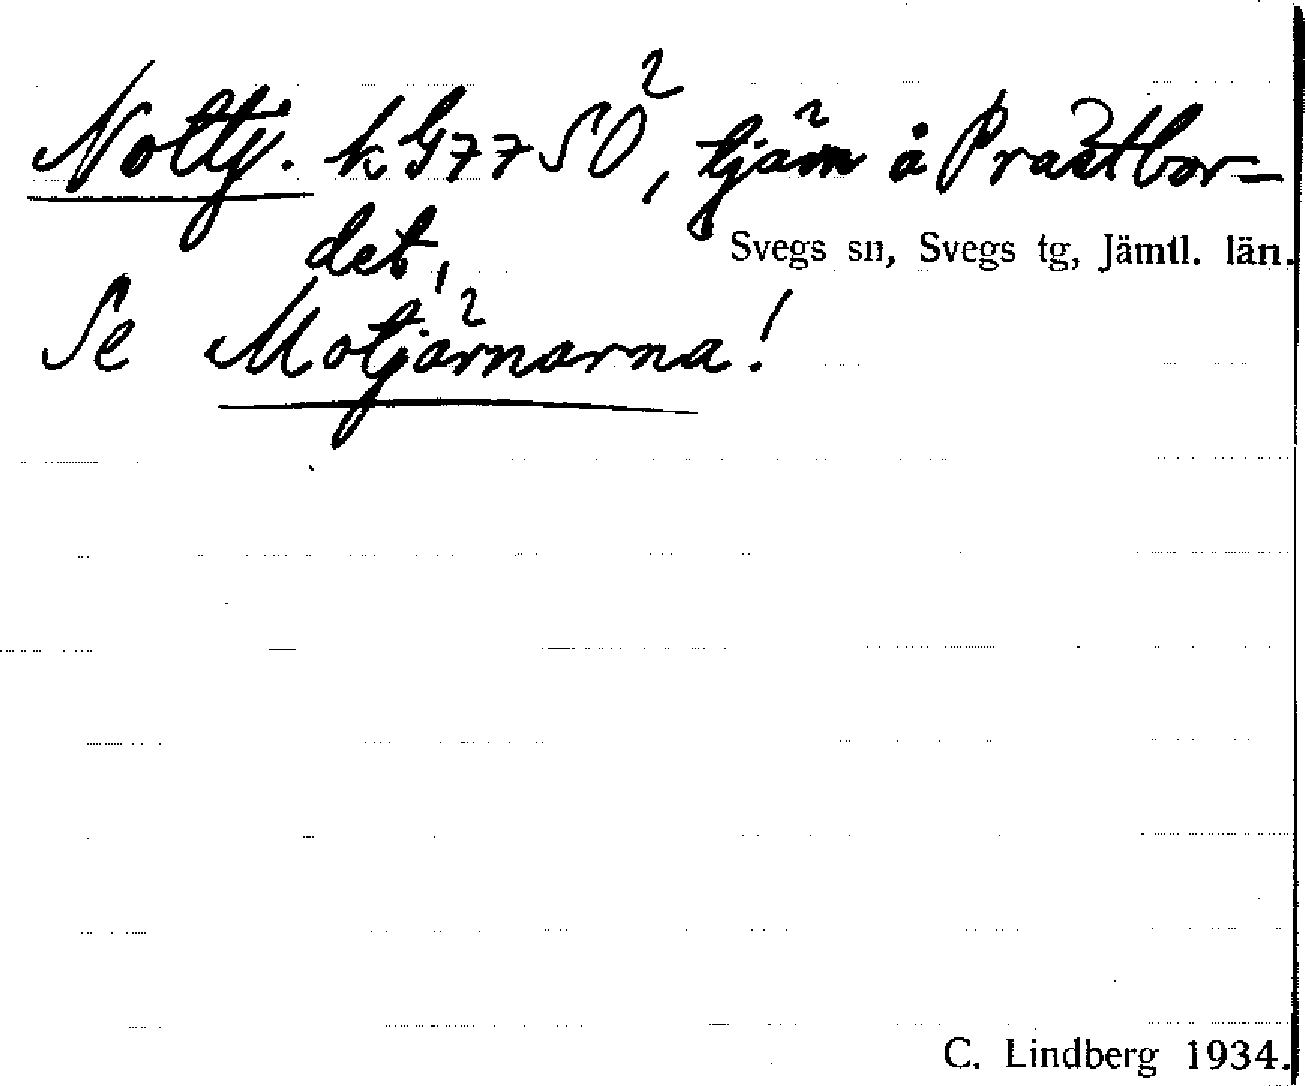 Noltj. k G77SÖ, tjärn å Prästbor-
det,
Svegs sn, Svegs tg, Jämtl. län.
Se Motjärnarna!
C. Lindberg 1934.